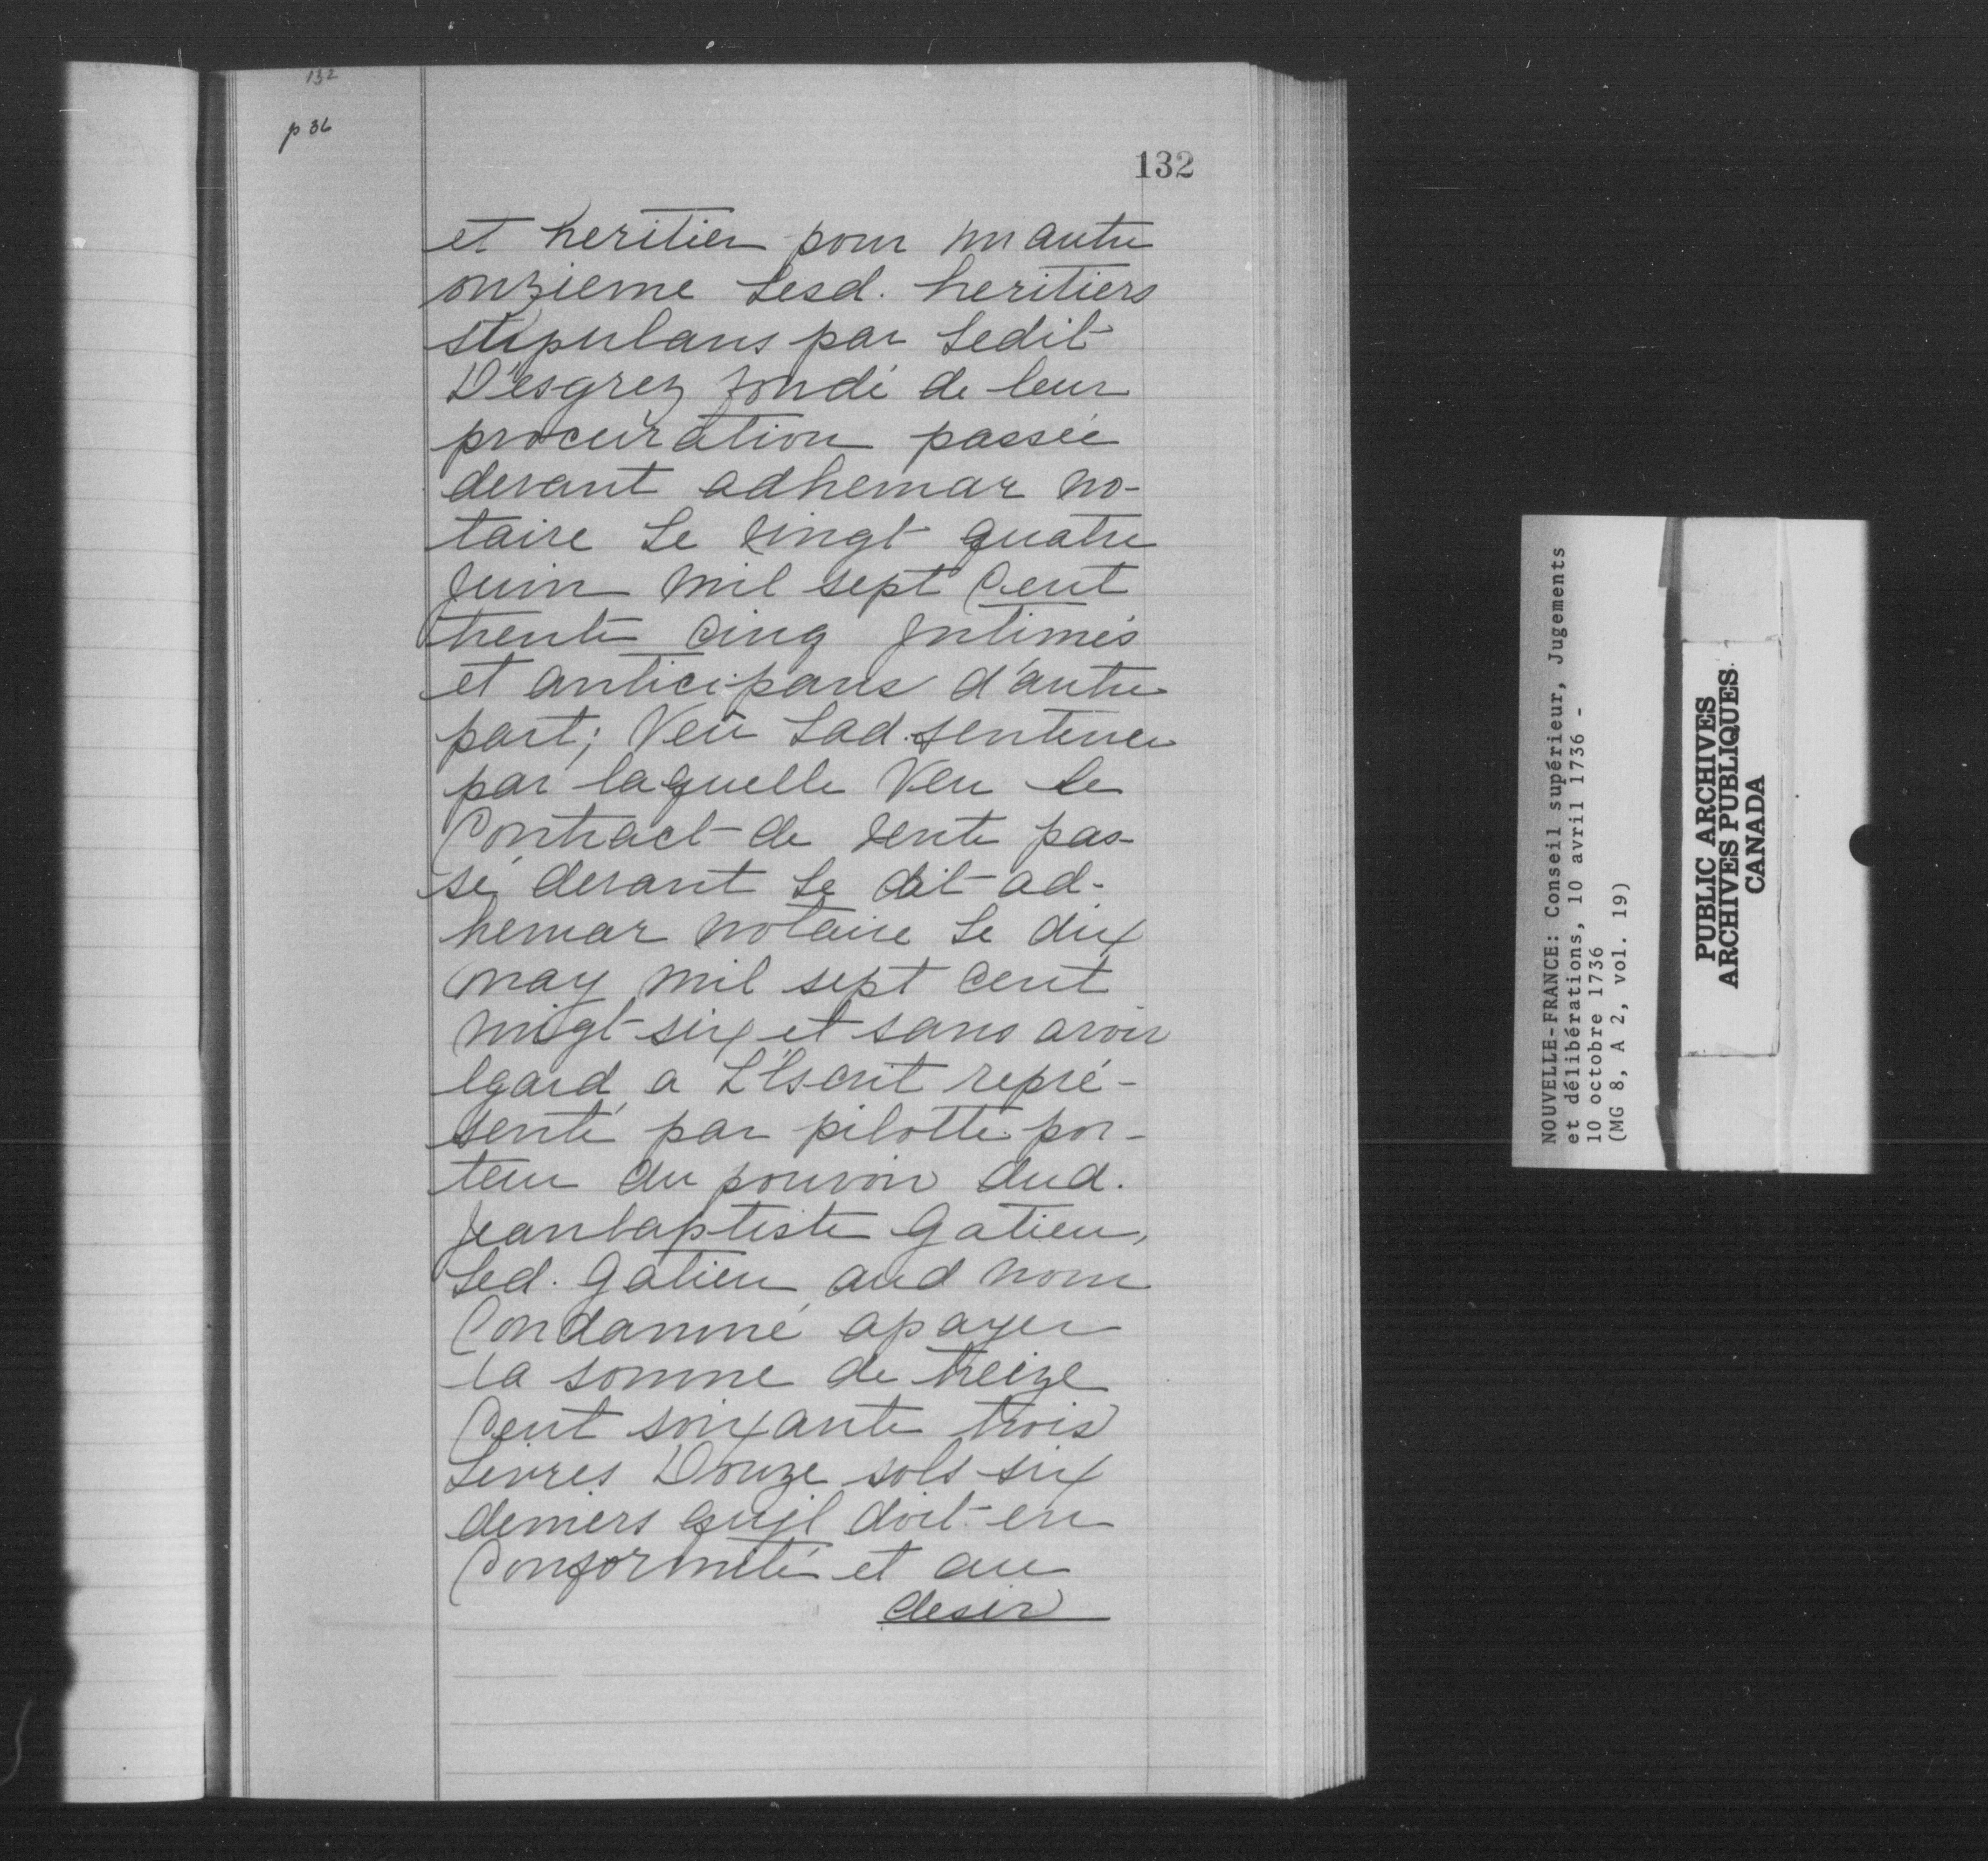 132
p 36
132
et heritier pour un autre
onzieme Lesd. heritiers
stipulans par Ledit
D'esgrez fondé de leur
procuration passée
devant adhemar no-
taire Le vingt quatre
Juin mil sept Cent
trente Cinq Intimés
et anticipans d'autre
part; Veü Lad. sentence
par laquelle Veu Le
Contract de vente pas-
sé devant Le dit ad-
hemar notaire Le dix
may mil sept cent
vingt six et sans avoir
Egard a L'Escrit repré-
senté par pilotte por-
teur du pouvoir dud.
Jeanbaptiste Gatien,
Led. Gatien aud nom
Condamné apayer
La somme de treize
Cent soixante trois
Livres Douze sols six
deniers quil doit en
Conformité et au
desir
NOUVELLE-FRANCE: Conseil supérieur, Jugements
et délibérations, 10 avril 1736 -
10 octobre 1736
(MG 8, A 2, vol. 19)
PUBLIC ARCHIVES
ARCHIVES PUBLIQUES
CANADA